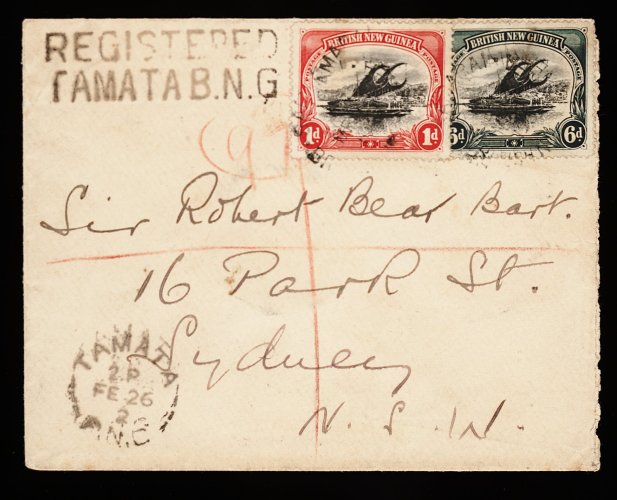 REGISTERED
TAMATA B.N.G
BRITISH NEW GUINEA
POSTAGE POSTAGE
1d 1d
BRITISH NEW GUINEA
POSTAGE
6d 6d
97
Sir Robert Bear Bart.
16 Park St.
Sydney
N. S. W.
TAMATA
2 P
FE 26
2